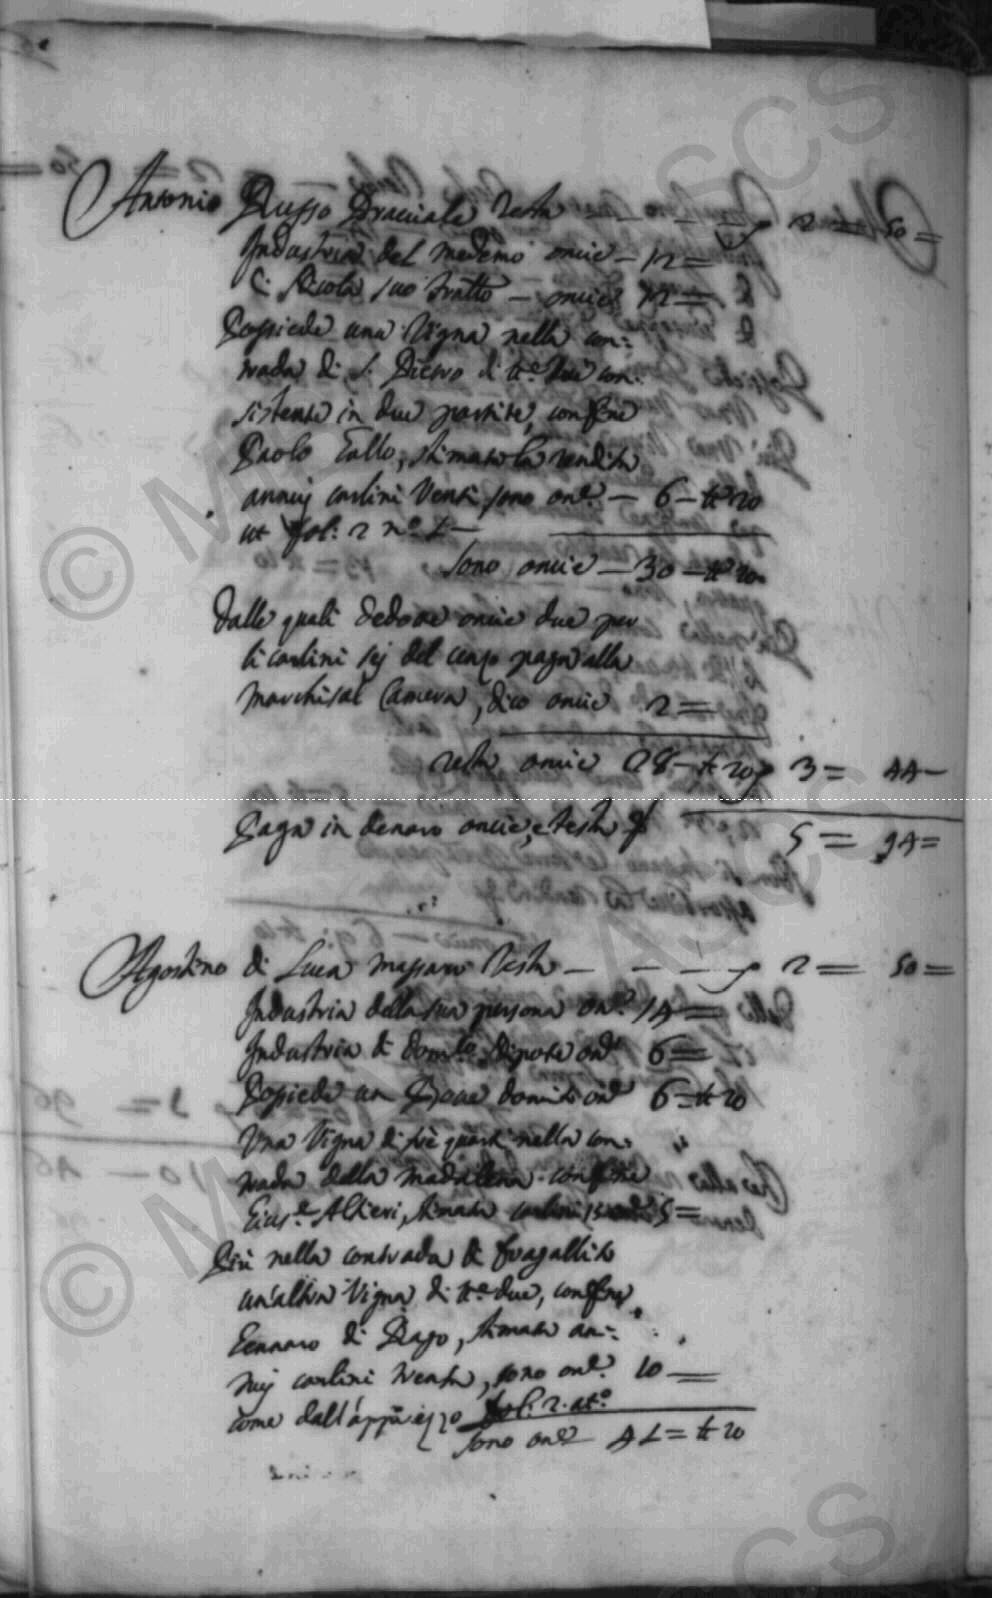 Antonio Russo Bracciale testa — — — 2 = 50 =
Industria del medemo oncie — 12 =
E Nicola suo fratello — oncie 12 =
Possiede una Vigna nella con:
trada di S. Pietro di tt.a due con:
sistente in due partite, confine
Paolo Gallo, stimata la rendita
annuj carlini Venti sono on.e — 6 — tt 20
ut fol: 2 n.o 1 —
sono oncie — 30 — tt 20
Dalle quali dedotte oncie due per
li carlini sej del censo paga alla
Marchisal Camera, dico oncie 2 =
resta oncie 28 — tt 20 3 = 44 —
Paga in denaro oncie, e testa 5 = 94 =
Agostino di Luca massaro testa — — — 2 = 50 =
Industria della sua persona on.e 14 =
Industria di Dom.co Nipote on.e 6 =
Possiede un Bove domito on.e 6 = tt 20
Una Vigna di trè quarti nella con:
trada della Madalena confine
Gius.e Altieri, stimata carlini 15 5 =
Più nella contrada di Fragallito
un'altra Vigna di tt.a due, confine
Gennaro di Biago, stimata an:
nuj carlini trenta, sono on.e 10 —
come dall'apprezzo fol: 2. at.o
sono on.e 41 = tt 20
© ASCS
© ASCS
ASCS